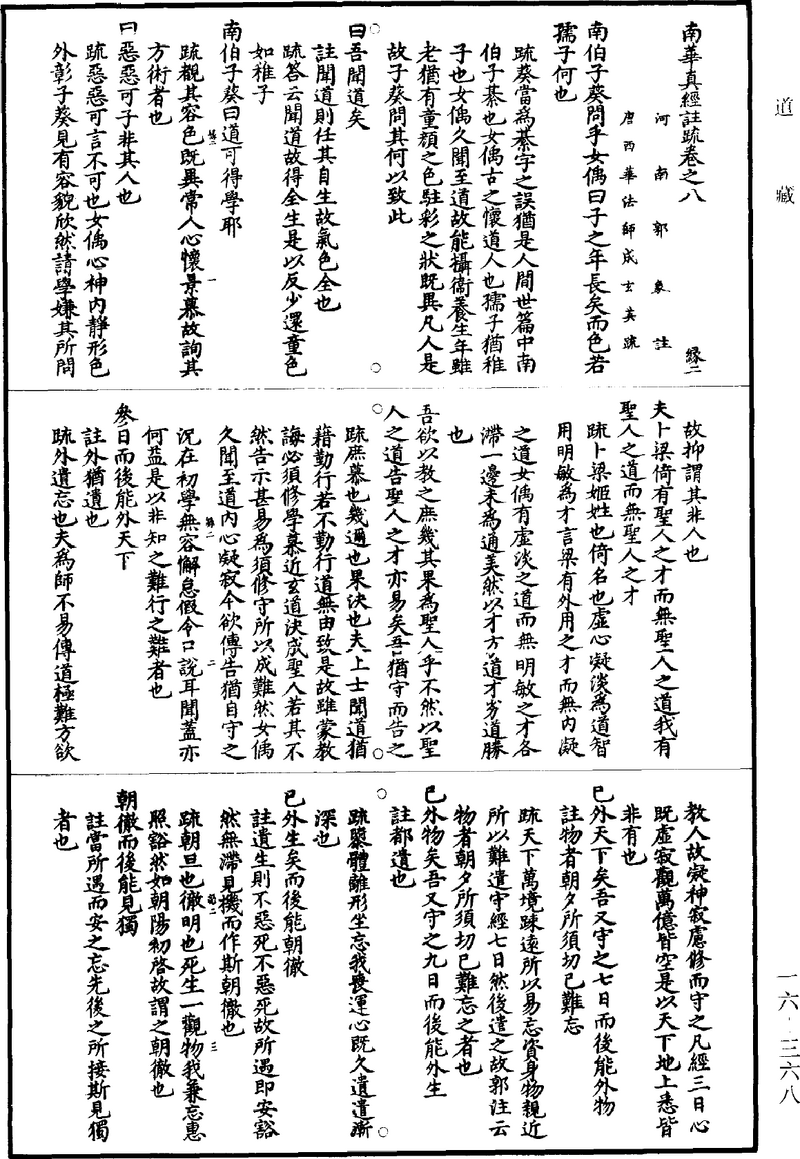 道藏
南華真經註疏卷之八
緣二
河南郭象註
唐西華法師成玄英疏
南伯子葵問乎女偊曰子之年長矣而色若
孺子何也
疏葵當為綦字之誤猶是人間世篇中南
伯子綦也女偊古之懷道人也孺子猶稚
子也女偊久聞至道故能攝衛養生年雖
老猶有童顏之色駐彩之狀既異凡人是
故子葵問其何以致此
曰吾聞道矣
註聞道則任其自生故氣色全也
疏答云聞道故得全生是以反少還童色
如稚子
南伯子葵曰道可得學耶
疏觀其容色既異常人心懷景慕故詢其
方術者也
曰惡惡可子非其人也
疏惡惡可言不可也女偊心神內靜形色
外彰子葵見有容貌欣然請學嫌其所問
故抑謂其非人也
夫卜梁倚有聖人之才而無聖人之道我有
聖人之道而無聖人之才
疏卜梁姬姓也倚名也虛心凝淡為道智
用明敏為才言梁有外用之才而無內凝
之道女偊有虛淡之道而無明敏之才各
滯一邊未為通美然以才方道才劣道勝
也
吾欲以教之庶幾其果為聖人乎不然以聖
人之道告聖人之才亦易矣吾猶守而告之
疏庶慕也幾邇也果決也夫上士聞道猶
藉勤行若不勤行道無由致是故雖蒙教
誨必須修學慕近玄道決成聖人若其不
然告示甚易為須修守所以成難然女偊
久聞至道內心凝寂今欲傳告猶自守之
況在初學無容懈怠假令口說耳聞蓋亦
何益是以非知之難行之難者也
參日而後能外天下
註外猶遺也
疏外遺忘也夫為師不易傳道極難方欲
教人故凝神寂慮修而守之凡經三日心
既虛寂觀萬億皆空是以天下地上悉皆
非有也
已外天下矣吾又守之七日而後能外物
註物者朝夕所須切己難忘
疏天下萬境疎遠所以易忘資身物親近
所以難遺守經七日然後遺之故郭注云
物者朝夕所須切己難忘之者也
已外物矣吾又守之九日而後能外生
註都遺也
疏隳體離形坐忘我喪運心既久遺遣漸
深也
已外生矣而後能朝徹
註遺生則不惡死不惡死故所遇即安豁
然無滯見機而作斯朝徹也
疏朝旦也徹明也死生一觀物我兼忘惠
照豁然如朝陽初啓故謂之朝徹也
朝徹而後能見獨
註當所遇而安之忘先後之所接斯見獨
者也
一六·三六八